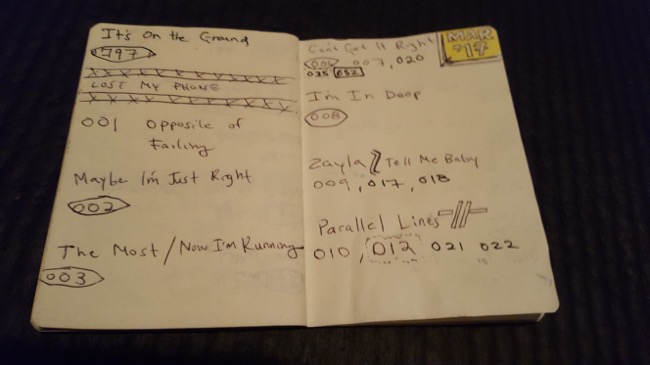 It's On the Ground
797
LOST MY PHONE
001 Opposite of
Failing
Maybe I'm Just Right
002
The Most / Now I'm Running
003
MAR
'17
Can't Get It Right
006 007, 020
035 052
I'm In Deep
008
Zayla Tell Me Baby
009, 017, 018
Parallel Lines
010, 012 021 022